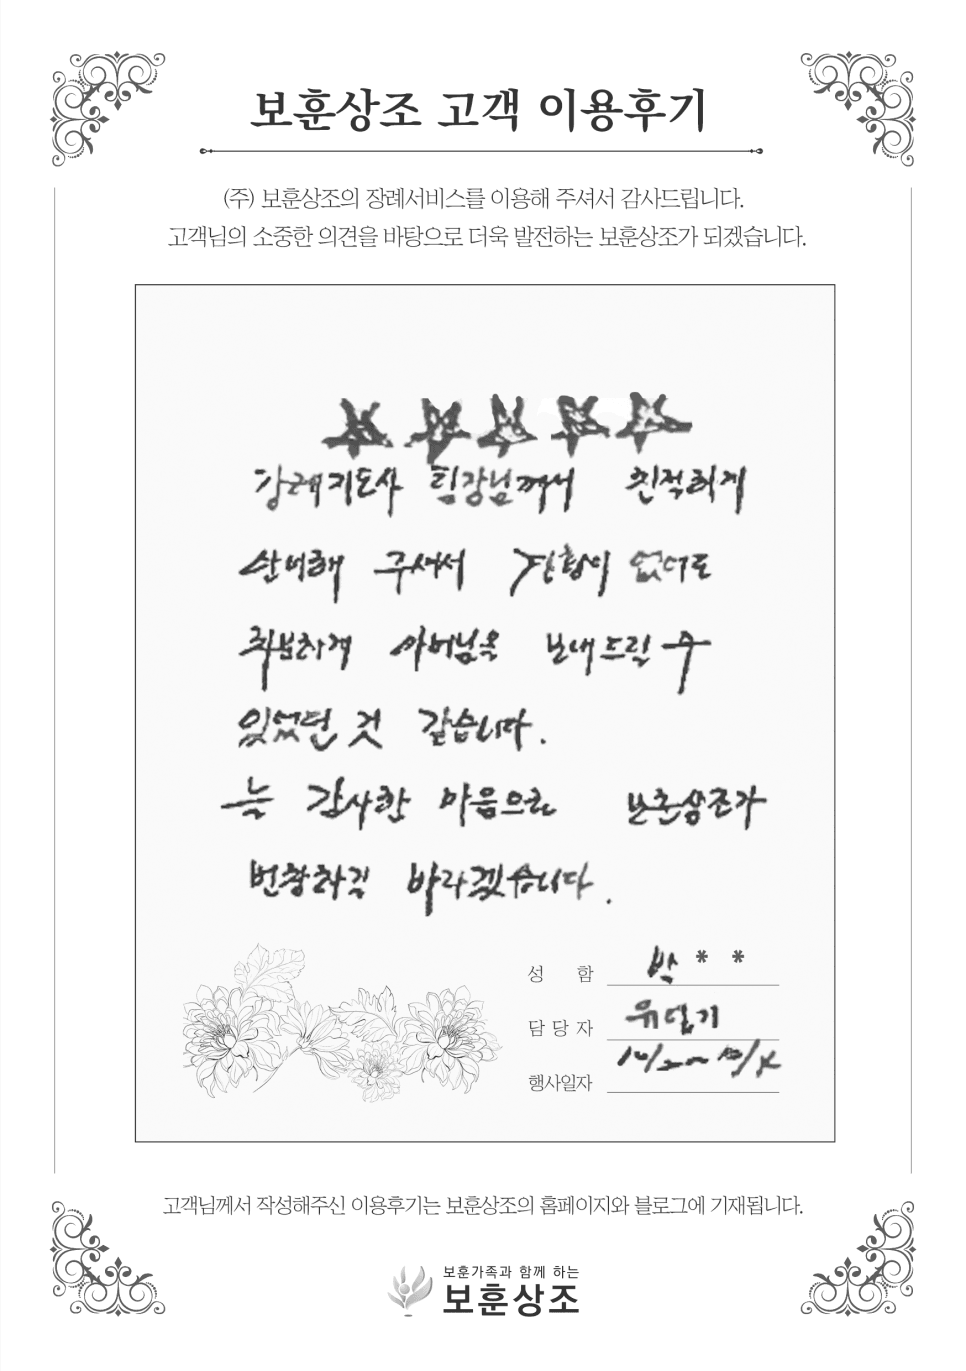 보훈상조 고객 이용후기
(주) 보훈상조의 장례서비스를 이용해 주셔서 감사드립니다.
고객님의 소중한 의견을 바탕으로 더욱 발전하는 보훈상조가 되겠습니다.
장례지도사 팀장님께서 친적히게
안내해 주셔서 경황이 없어도
차분하게 어머님을 보내드릴 수
있었던 것 같습니다.
늘 감사한 마음으로 보훈상조가
번창하길 바라겠습니다.
성 함 박 * *
담당자 유덕기
행사일자 10/2~10/4
고객님께서 작성해주신 이용후기는 보훈상조의 홈페이지와 블로그에 기재됩니다.
보훈가족과 함께 하는
보훈상조